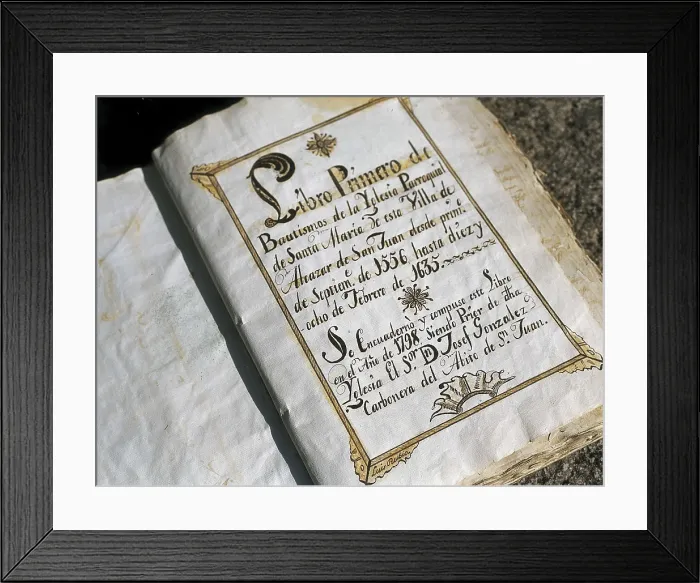 Libro Primero de
Bautismos de la Yglesia Parroquial
de Santa Maria de esta Villa de
Alcazar de San Juan desde prim.º
de Septien. de 1556 hasta diez y
ocho de Febrero de 1635.
Se Encuaderno y compuso este Libro
en el Año de 1798 Siendo Prior de dha
Yglesia El Sor. Dn. Josef Gonzalez
Carbonera del Abito de Sn. Juan.